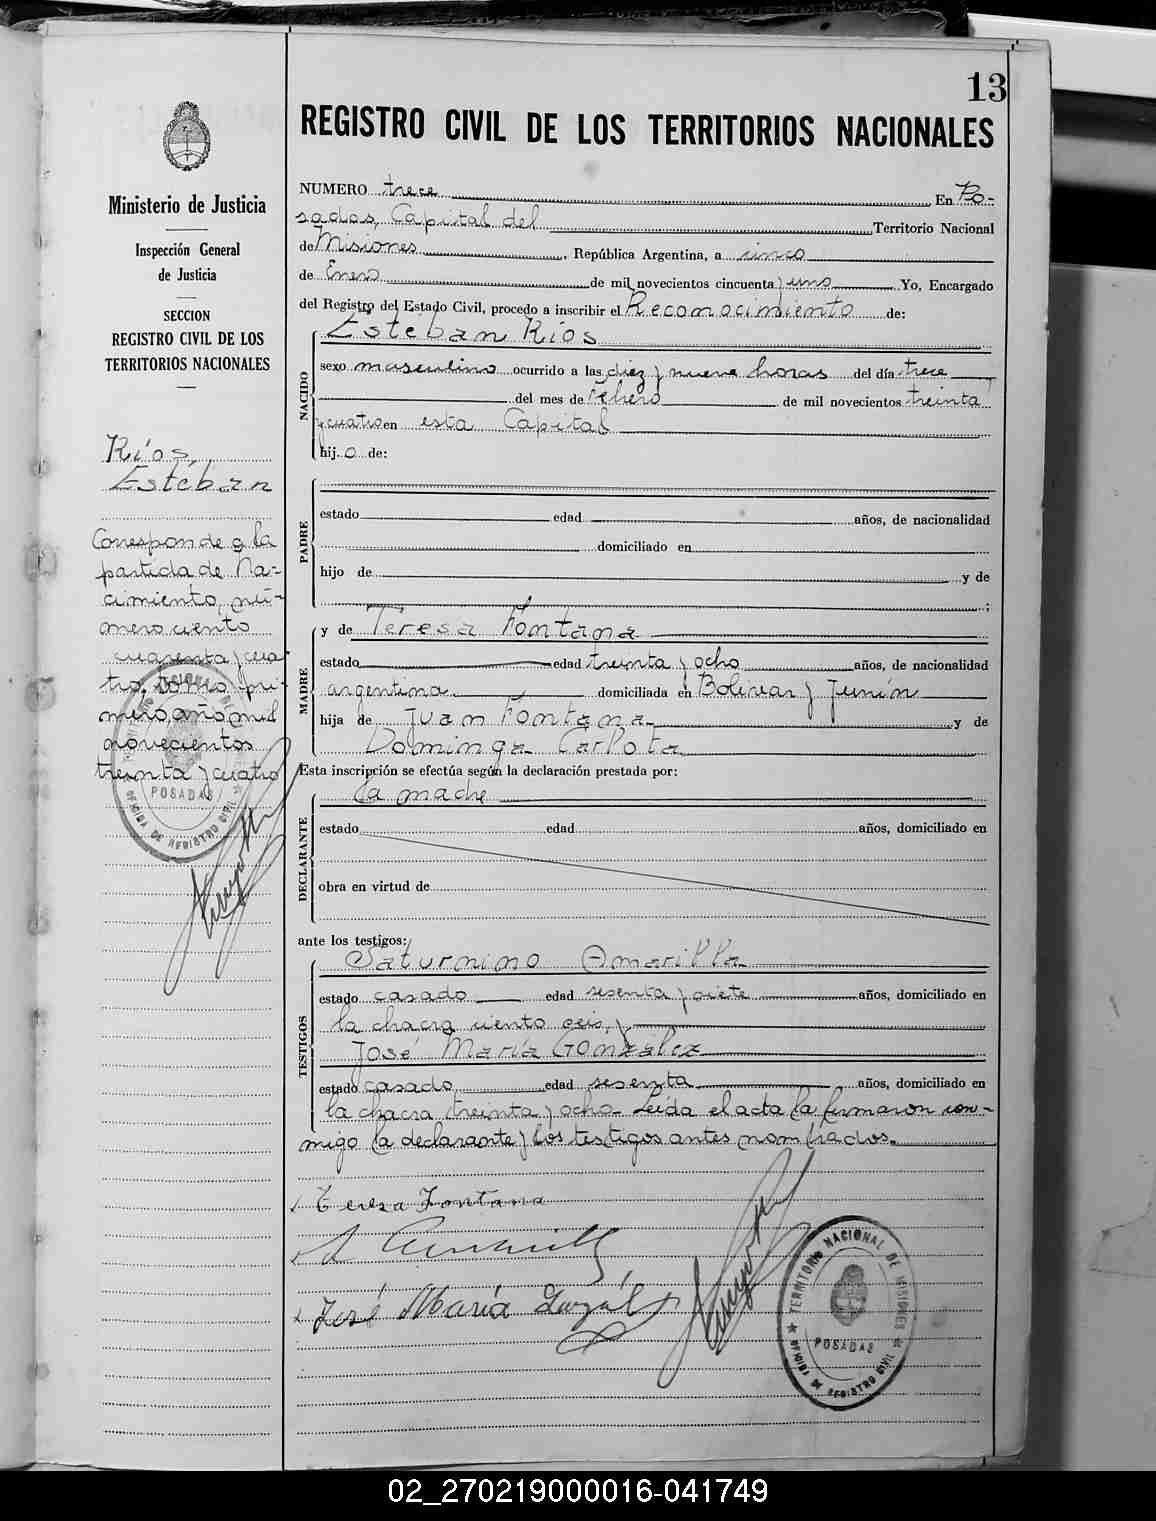 13
REGISTRO CIVIL DE LOS TERRITORIOS NACIONALES
Ministerio de Justicia
Inspección General
de Justicia
SECCION
REGISTRO CIVIL DE LOS
TERRITORIOS NACIONALES
Ríos,
Esteban
Corresponde a la
partida de Na-
cimiento, nú-
mero ciento
cuarenta y cua-
tro, tomo pri-
mero, año mil
novecientos
treinta y cuatro
POSADAS
OFICINA DE REGISTRO CIVIL
NUMERO trece En Po-
sadas, Capital del Territorio Nacional
de Misiones, República Argentina, a cinco
de Enero de mil novecientos cincuenta y uno Yo, Encargado
del Registro del Estado Civil, procedo a inscribir el Reconocimiento de:
Esteban Ríos
NACIDO
sexo masculino ocurrido a las diez y nueve horas del día trece
del mes de Febrero de mil novecientos treinta
y cuatro en esta Capital
hijo de:
PADRE
estado edad años, de nacionalidad
domiciliado en
hijo de y de
;
MADRE
y de Teresa Fontana
estado edad treinta y ocho años, de nacionalidad
argentina domiciliada en Bolívar y Junín
hija de Juan Fontana y de
Dominga Carlota
Esta inscripción se efectúa según la declaración prestada por:
la madre
DECLARANTE
estado edad años, domiciliado en
obra en virtud de
ante los testigos:
Saturnino Amarilla
TESTIGOS
estado casado edad sesenta y siete años, domiciliado en
la chacra ciento seis, y
José María González
estado casado edad sesenta años, domiciliado en
la chacra treinta y ocho. Leída el acta la firmaron con-
migo la declarante y los testigos antes nombrados.
Teresa Fontana
José María
TERRITORIO NACIONAL DE MISIONES
POSADAS
OFICINA DE REGISTRO CIVIL
02_270219000016-041749